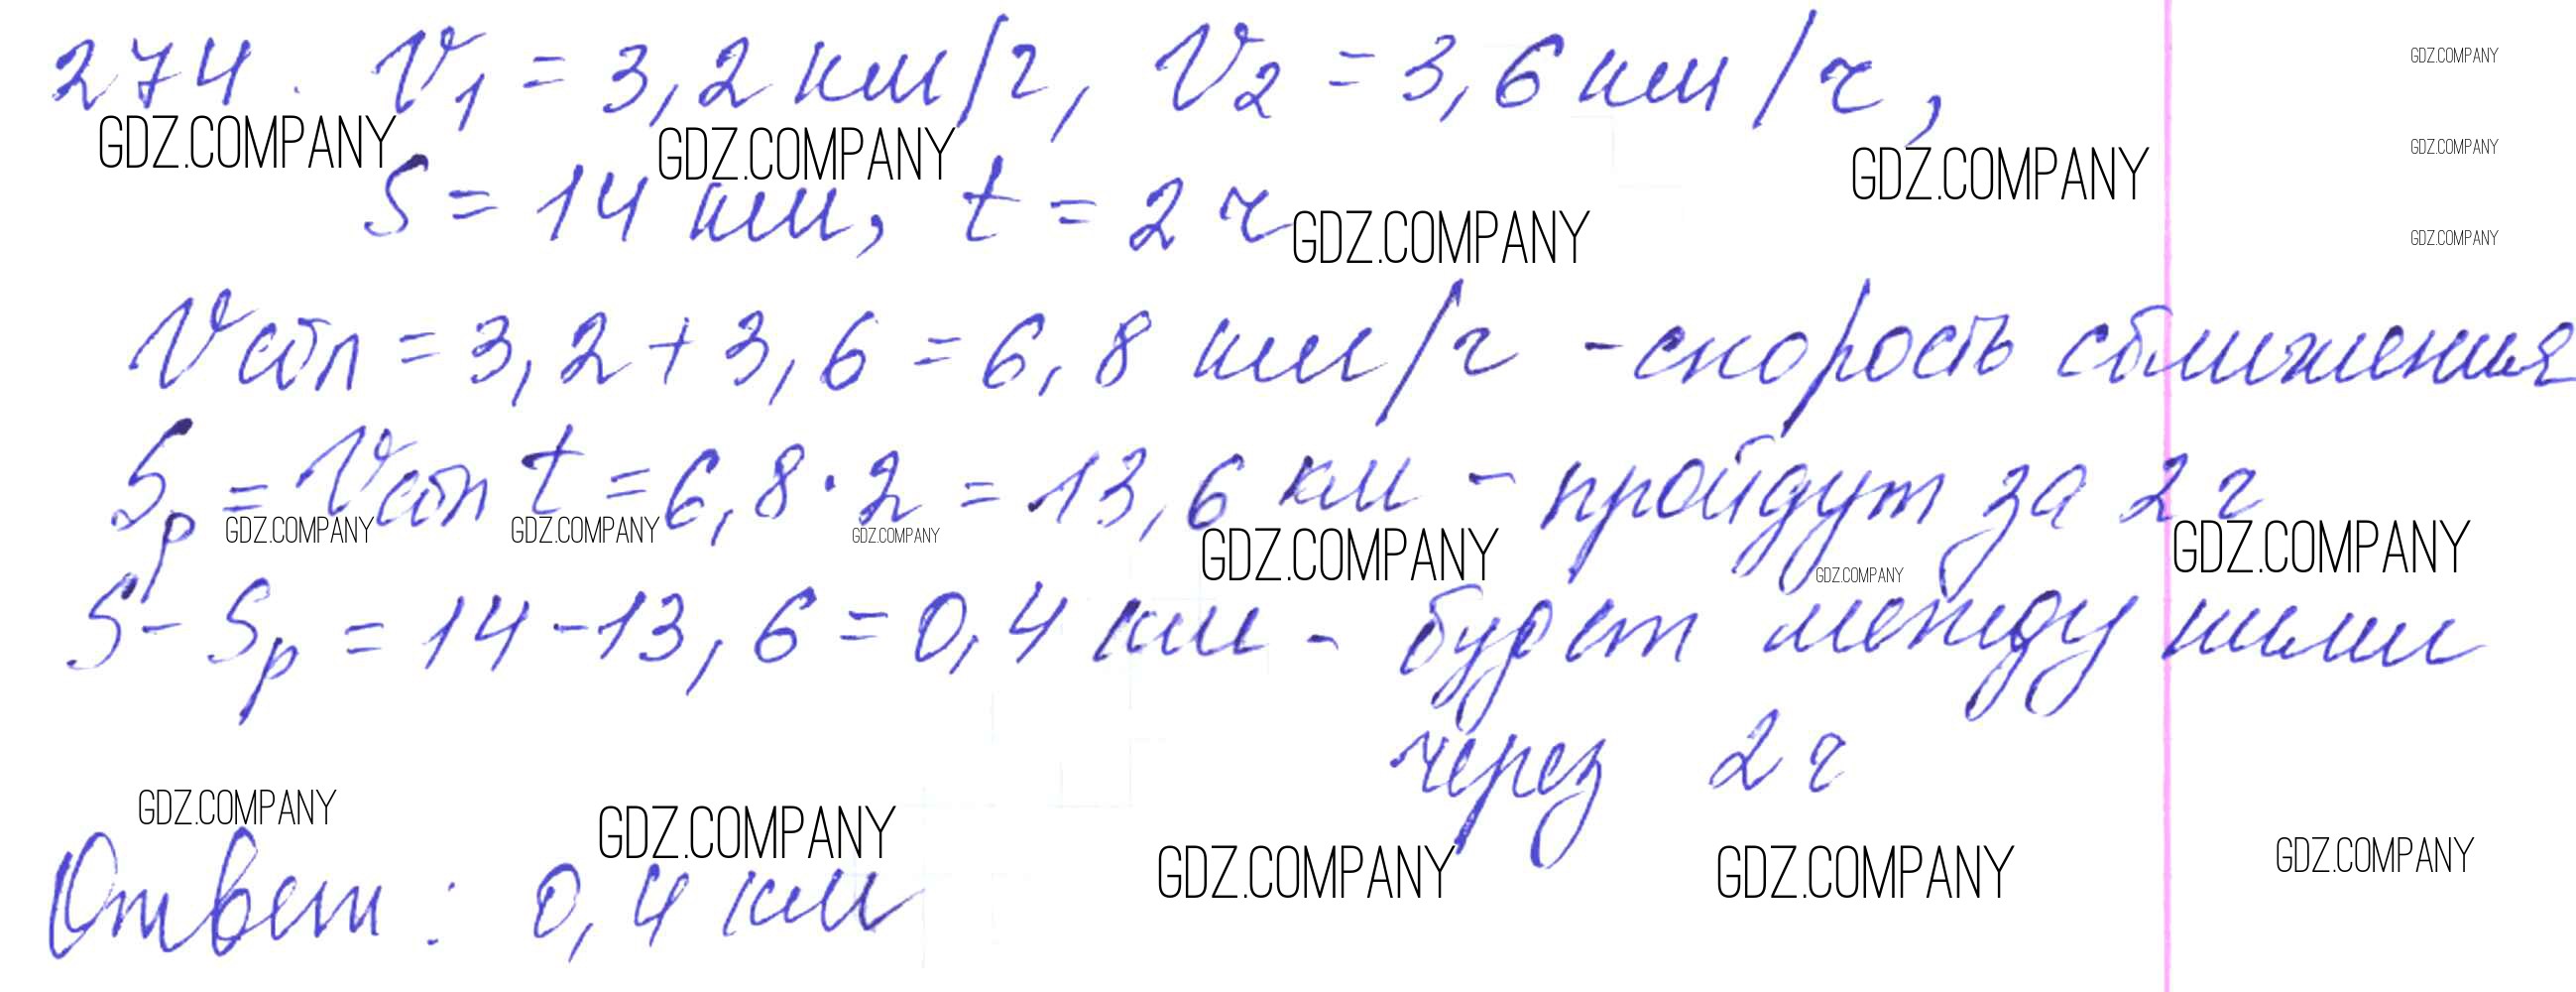 274. V₁ = 3,2 км/ч, V₂ = 3,6 км/ч,
GDZ.COMPANY GDZ.COMPANY GDZ.COMPANY
S = 14 км, t = 2 ч
GDZ.COMPANY
GDZ.COMPANY
GDZ.COMPANY
GDZ.COMPANY
Vсбл = 3,2 + 3,6 = 6,8 км/ч - скорость сближения
Sр = Vсбл t = 6,8 · 2 = 13,6 км - пройдут за 2 ч
GDZ.COMPANY GDZ.COMPANY GDZ.COMPANY GDZ.COMPANY GDZ.COMPANY GDZ.COMPANY
S - Sр = 14 - 13,6 = 0,4 км - будет между ними
через 2 ч
GDZ.COMPANY GDZ.COMPANY GDZ.COMPANY GDZ.COMPANY GDZ.COMPANY
Ответ: 0,4 км